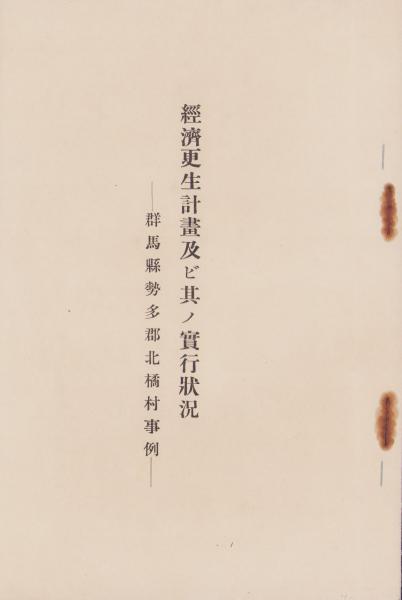 經濟更生計畫及ビ其ノ實行狀況
―群馬縣勢多郡北橘村事例―